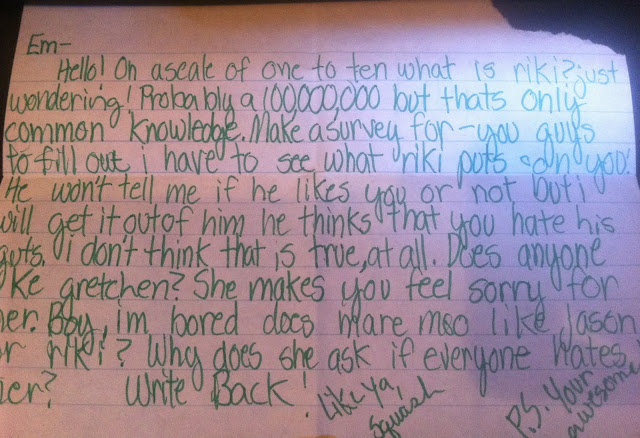 Em-
Hello! On a scale of one to ten what is riki? just
wondering! Probably a 100,000,000 but thats only
common knowledge. Make a survey for - you guys
to fill out i have to see what riki puts on you!
He won't tell me if he likes you or not but i
will get it out of him he thinks that you hate his
guts. i don't think that is true, at all. Does anyone
ke gretchen? She makes you feel sorry for
her. Boy, im bored does mare meo like Jason
or riki? Why does she ask if everyone hates
her? Write Back! Like Ya,
Squash
P.S. Your
awesome!